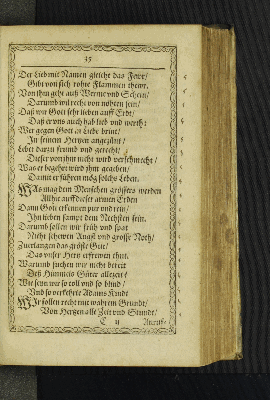 35
Der Lieb mit Namen gleicht das Fewr/
Gibt von sich rohte Flammen thewr,
Von ihm geht auß Werme vnd Schein/
Darumb wil recht von nöhten sein/
Daß wir Gott sehr lieben auff Erdt/
Daß er vns auch hab lieb vnd werth:
Wer gegen Gott in Liebe brint/
In seinem Hertzen angezünt/
Lebet darzu frumb vnd gerecht/
Dieser von jhm nicht wird verschmecht/
Was er begehrt wird jhm geschehen/
Damit er führen mög solchs Leben.
WAs mag dem Menschen grössers werden
Allhie auff dieser armen Erden
Dann Gott erkennen pur vnd rein/
Ihn lieben sampt dem Nechsten sein.
Darumb sollen wir früh vnd spat
Nicht schewen Angst vnd grosse Noth/
Zuerlangen das gröste Gut/
Das vnser Hertz erfrewen thut.
Warumb suchen wir nicht bereit
Deß Himmels Güter allezeit/
Wie sein wir so toll vnd so blind/
Vnd so verkehrte Adams Kindt
WIr sollen recht mit wahrem Grundt/
Von Hertzen alle Zeit vnd Stundt/
C ij